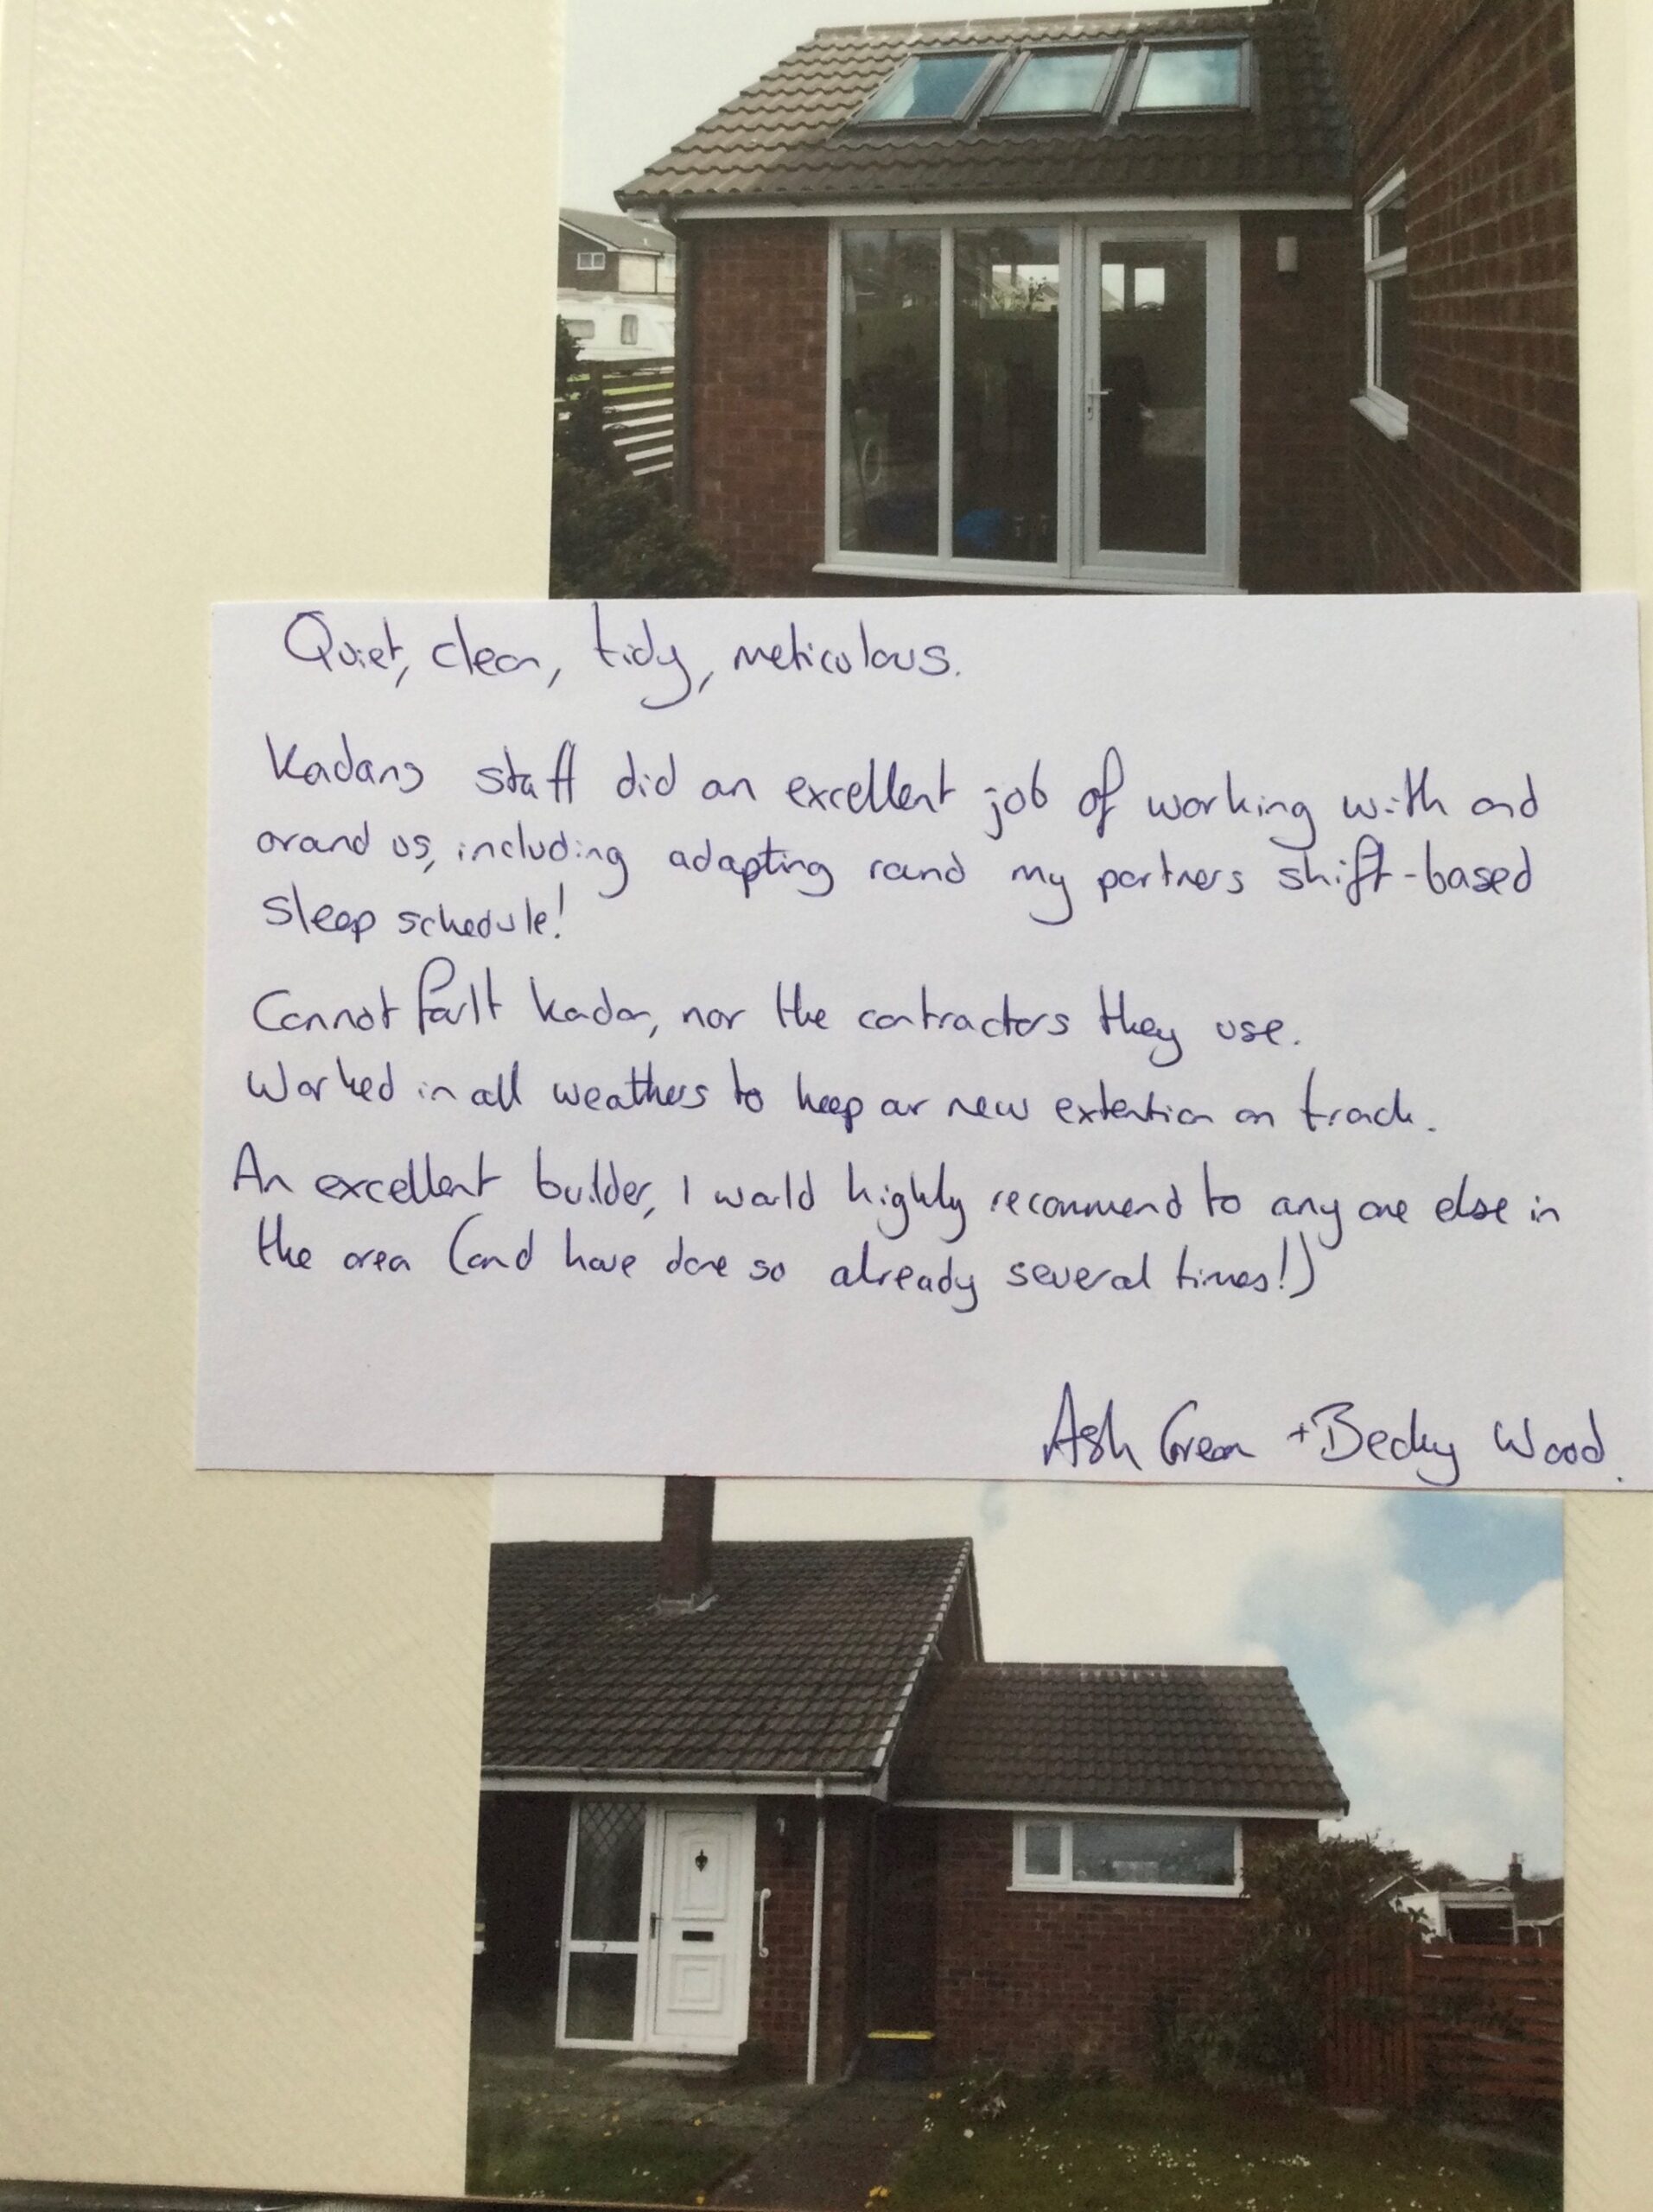 Quiet, clean, tidy, meticulous.
Kadans staff did an excellent job of working with and
around us, including adapting round my partners shift-based
sleep schedule!
Cannot fault Kadan, nor the contractors they use.
Worked in all weathers to keep our new extention on track.
An excellent builder, I would highly recommend to any one else in
the area (and have done so already several times!)
Ash Green + Becky Wood.
7